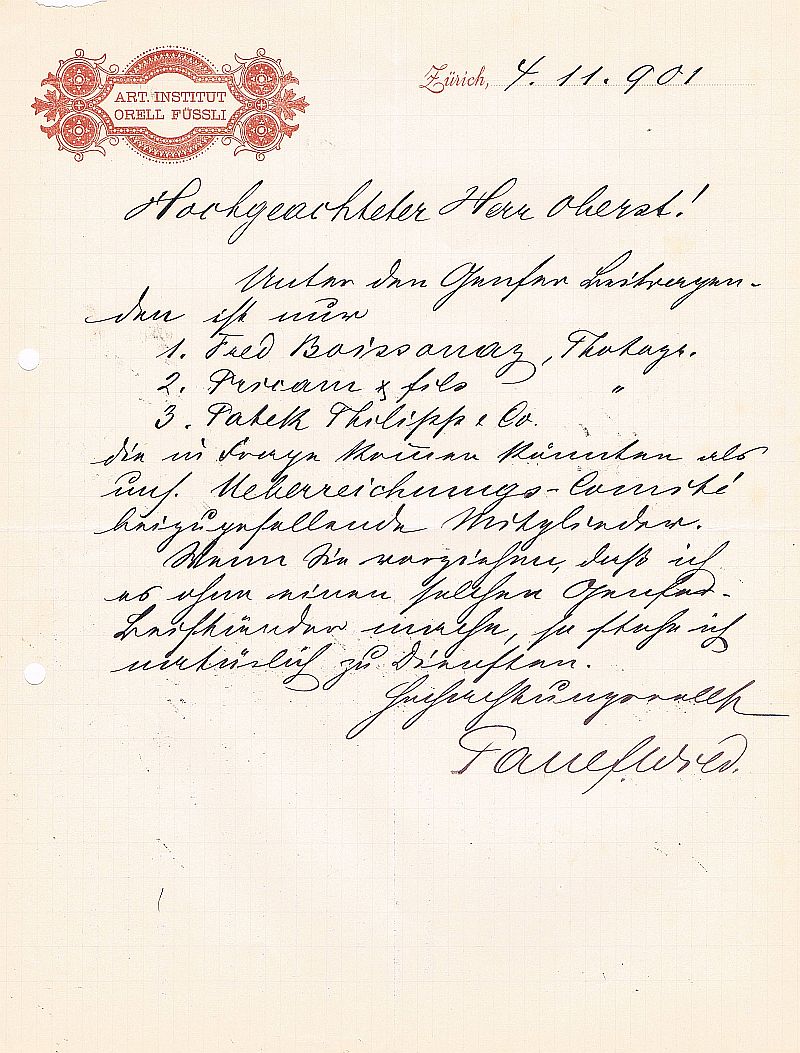 ART. INSTITUT
ORELL FÜSSLI
Zürich, 4. 11. 901
Hochgeachteter Herr Oberst!
Unter den Genfer Beitragen-
den ist nur
1. Fred Boissonaz, Photogr.
2. Pricam & fils "
3. Patek Philipp & Co.
die in Frage kom̅en könnten als
uns. Ueberreichungs-Comité
beizugesellende Mitglieder.
Wenn Sie vorziehen, daß ich
es ohne einen solchen Genfer-
Beiständer mache, so stehe ich
natürlich zu Diensten.
Hochachtungsvollst
Paul F. Wild.